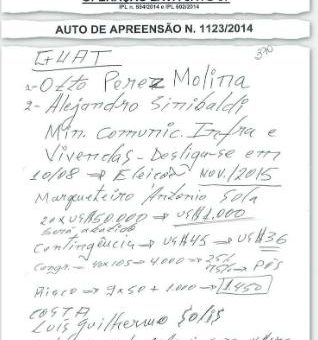 IPL n. 554/2014 e IPL 602/2014
AUTO DE APREENSÃO N. 1123/2014
GUAT
1- Otto Perez Molina
2- Alejandro Sinibaldi
Min. Comunic. Infra e
Viviendas - Desliga-se em
10/08 → Eleição NOV./2015
Marqueteiro Antonio Sola
20 x US$50.000 → US$1.000
Será abatido
Contingência → US$45 → US$36
→ 4.000 → 25%
75% → Pós
Risco → 9x50 + 1000 → $1450
COSTA
Luis Guilhermo Solís